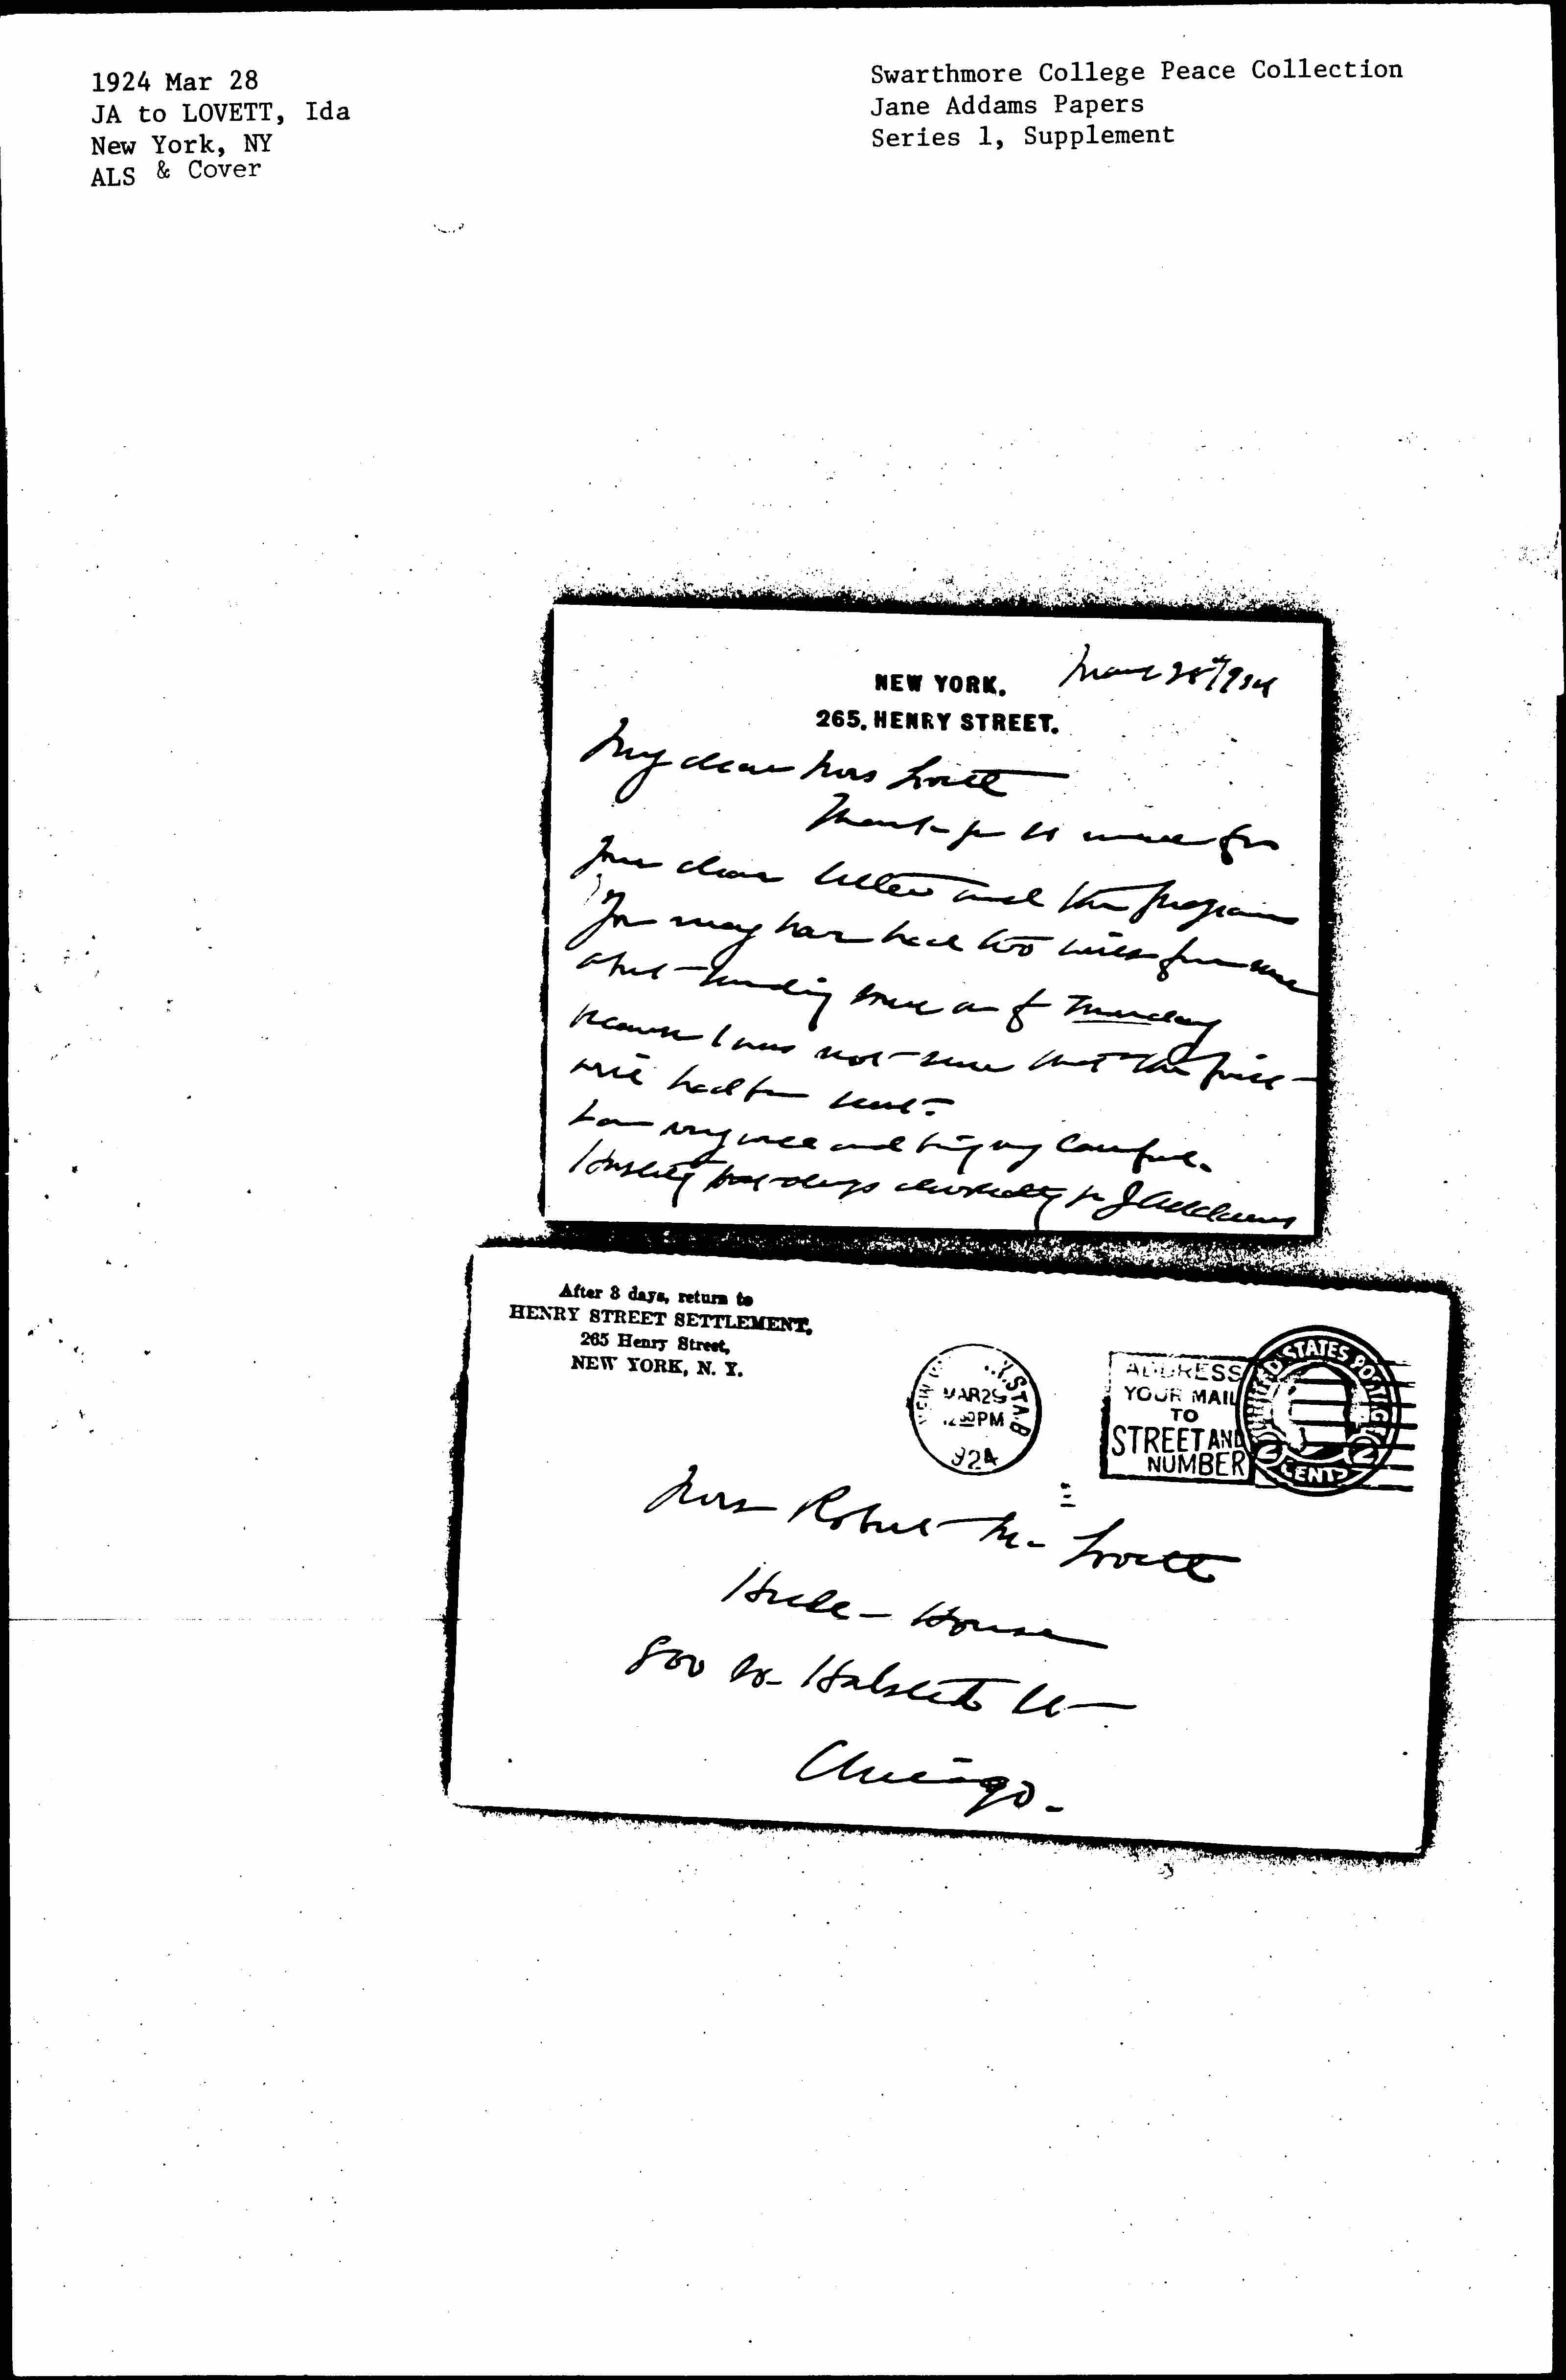 1924 Mar 28
JA to LOVETT, Ida
New York, NY
ALS & Cover
Swarthmore College Peace Collection
Jane Addams Papers
Series 1, Supplement
NEW YORK.
265, HENRY STREET.
March 28" 1924
My dear Mrs Lovett
Thank you so much for
your dear letter and the program
You may have had two wires from me
about sending more on Thursday
because I was not sure that the first
wire had been sent.
I am very well and being very careful.
Hastily but always devotedly yrs JAddams
After 3 days, return to
HENRY STREET SETTLEMENT,
265 Henry Street,
NEW YORK, N. Y.
MAR 29
12 30 PM
1924
STA. B
ADDRESS
YOUR MAIL
TO
STREET AND
NUMBER
UNITED STATES POSTAGE
2 CENTS 2
Mrs Robert M. Lovett
Hull-House
800 So. Halsted St
Chicago.